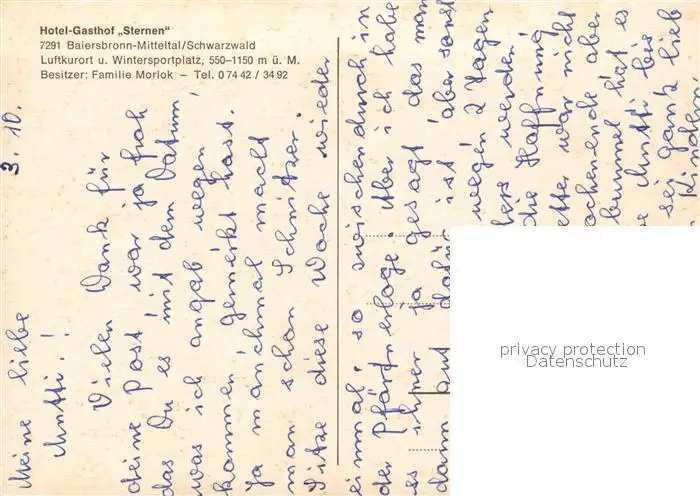 Hotel-Gasthof „Sternen"
7291 Baiersbronn-Mitteltal/Schwarzwald
Luftkurort u. Wintersportplatz, 550–1150 m ü. M.
Besitzer: Familie Morlok – Tel. 0 74 42 / 34 92
3. 10.
Meine liebe
Mutti!!
Vielen Dank für
deine Post war ja froh
das Du es mit dem Datum
was ich angab wegen
kommen gemerkt hast.
ja manchmal macht
man schon Schnitzer.
Sitze diese Woche wieder
einmal so zwischendurch in
der Pförtnerloge. Aber ich habe
es ihner ja gesagt das man
dann auf dafür ist aber sonst
wegen 2 Tagen
werden
die Hoffnung
war nicht
ochenende aber
hat es
Mutti bis
sei ganz lieb
Kindern
privacy protection
Datenschutz